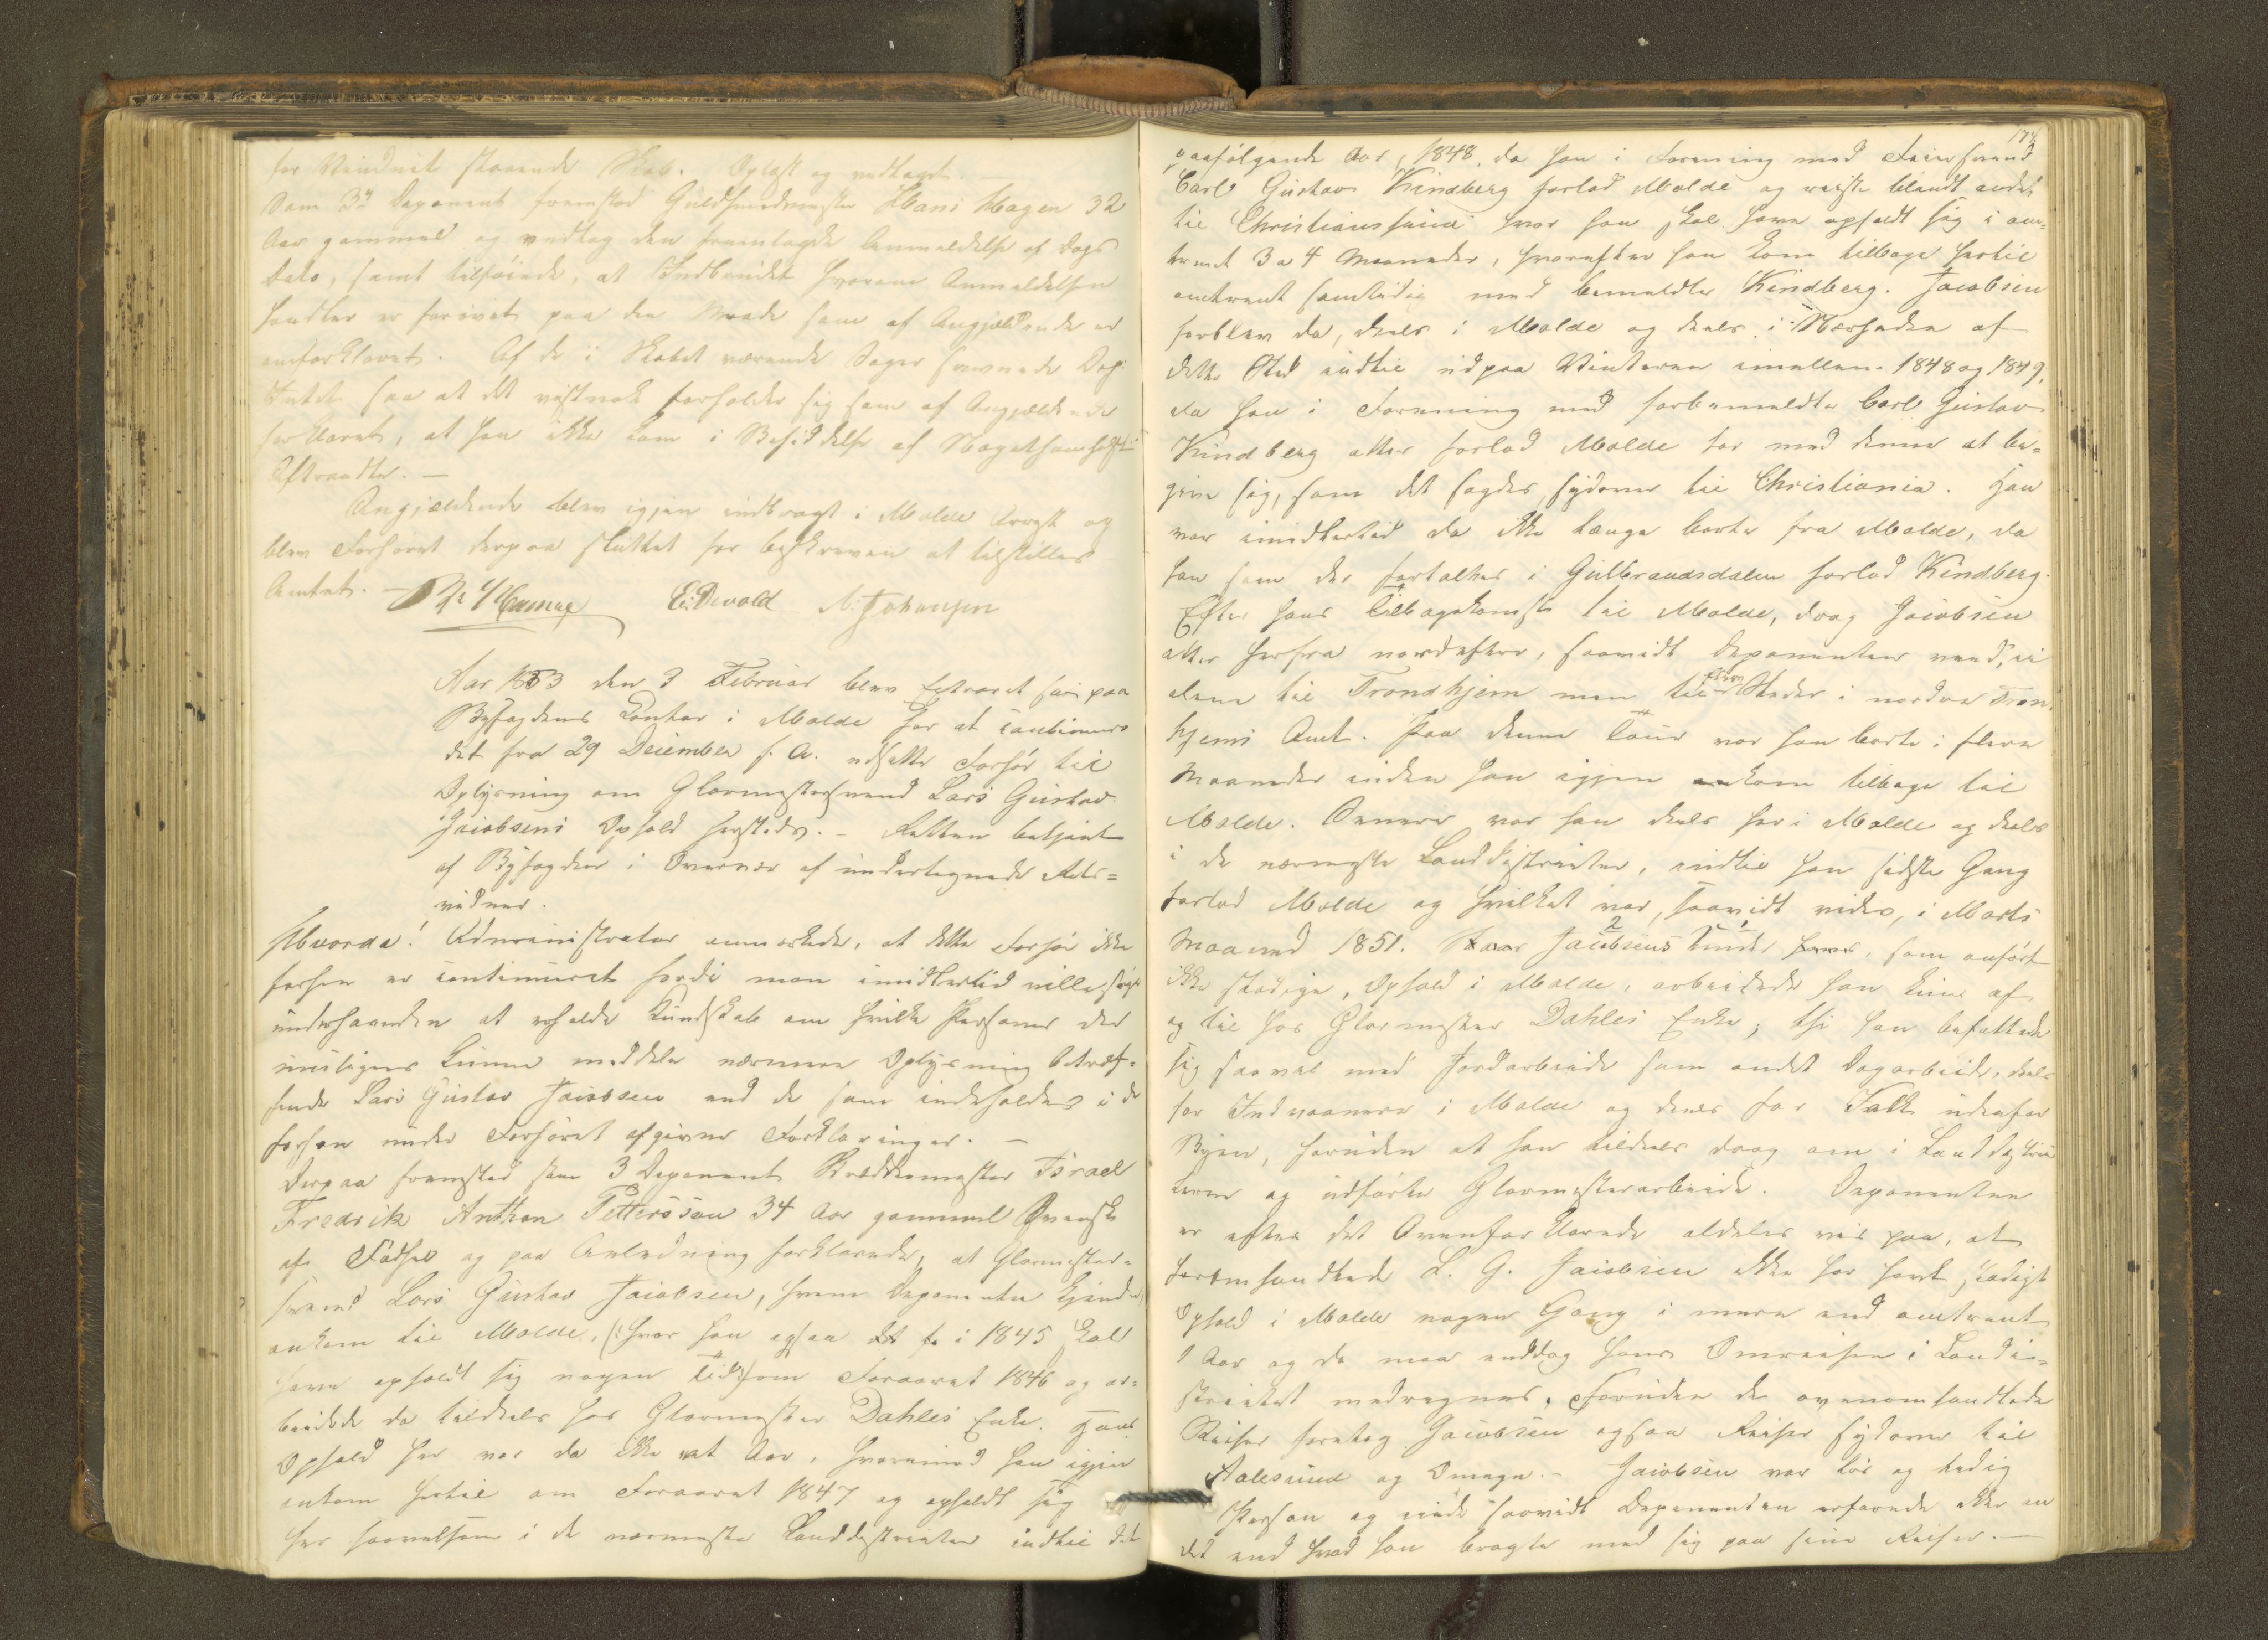 for Vinduet staaende Skab. Oplæst og vedtaget. —
Som 3die Deponent fremstod Guldsmedmester Hans Hagen 32
Aar gammel og vedtog den fremlagde Anmeldelse af Dags
Dato, samt tilføiede, at Indbruddet hvorom Anmeldelsen
handler er forøvet paa den Maade som af Angjældende er
omforklaret. Af de i Skabet værende Sager savnede Dep:
Intet saa at det vistnok forholder sig som af Angjældende
forklaret, at han ikke kom i Besiddelse af Nogetsomhelst
Eftertragtet. —
Angjældende blev igjen indbragt i Molde Arrest og
blev Forhøret derpaa sluttet for beskreven at tilstilles
Amtet. — E. Devold N. Johansen
Aar 1853 den 3 Februar blev Extraret sat paa
Byfogdens Contor i Molde for at continuere
det fra 29 December f. A. udsatte Forhør til
Oplysning om Glarmestersvend Lars Gustav
Jacobsens Ophold hersteds. — Retten betjent
af Byfogden i Overvær af undertegnede Rets=
vidner.
Hvorda! Administrator anmærkede, at dette Forhør ikke
forhen er continueret fordi man imidlertid vilde søge
underhaanden at erholde Kundskab om hvilke Personer der
muligens kunne meddele nærmere Oplysning betræf=
fende Lars Gustav Jacobsen end de som indeholdes i de
forhen under Forhøret afgivne Forklaringer. —
Derpaa fremstod som 3 Deponent Bødkermester Israel
Fredrik Anthon Pettersson 34 Aar gammel Svensk
af Fødsel og paa Anledning forklarede, at Glarmester=
svend Lars Gustav Jacobsen, hvem Deponenten kjender,
ankom til Molde, (hvor han ogsaa i 1845 skal
have opholdt sig nogen Tid) om Foraaret 1846 og ar=
beidede da tildeels hos Glarmester Dahles Enke. Hans
Ophold her var da ikke et Aar, hvorimod han igjen
ankom hertil om Foraaret 1847 og opholdt sig
her saavelsom i de nærmeste Landdistricter indtil det
174
paafølgende Aar, 1848, da han i Forening med Farversvend
Carl Gustav Kindberg forlod Molde og reiste blandt andet
til Christianssund hvor han skal have opholdt sig i om=
trent 3 a 4 Maaneder, hvorefter han kom tilbage hertil
omtrent samtidig med bemeldte Kindberg. Jacobsen
forblev da, deels i Molde og deels i Nærheden af
dette Sted indtil ud paa Vinteren imellem 1848 og 1849,
da han i Forening med forbemeldte Carl Gustav
Kindberg atter forlod Molde for med denne at be=
give sig, som det sagdes, sydover til Christiania. Han
var imidlertid da ikke længe borte fra Molde, da
han som der fortaltes i Gulbrandsdalen forlod Kindberg.
Efter hans Tilbagekomst til Molde, drog Jacobsen
atter herfra nordefter, saavidt Deponenten veed, ei
alene til Trondhjem men til flere Steder i nordre Tron.
hjems Amt. Paa denne Tour var han borte i flere
Maaneder inden han igjen ankom tilbage til
Molde. Senere var han deels her i Molde og deels
i de nærmeste Landdistricter, indtil han sidste Gang
forlod Molde og hvilket var, saavidt vides, i Marts
Maaned 1851. Jacobsens under, som anført
ikke stadige, Ophold i Molde, arbeidede han kun af
og til hos Glarmester Dahles Enke, thi han befattede
sig saavel med Jordarbeide som andet Dagarbeide, deels
for Indvaanere i Molde og deels for Folk udenfor
Byen, foruden at han tildeels drog om i Landdistric=
terne og udførte Glarmesterarbeide. Deponenten
er efter det Ovenforklarede aldeles vis paa, at
foromhandlede L. G. Jacobsen ikke har havt stadigt
Ophold i Molde nogen Gang i mere end omtrent
1 Aar og da maa enddog hans Omreisen i Landdi=
strictet medregnes. Foruden de ovenomhandlede
Reiser foretog Jacobsen ogsaa Reiser sydover til
Aalesund og Omegn. — Jacobsen var løs og ledig
Person og eiede saavidt Deponenten erfarede ikke an
det end hvad han bragte med sig paa sine Reiser. —